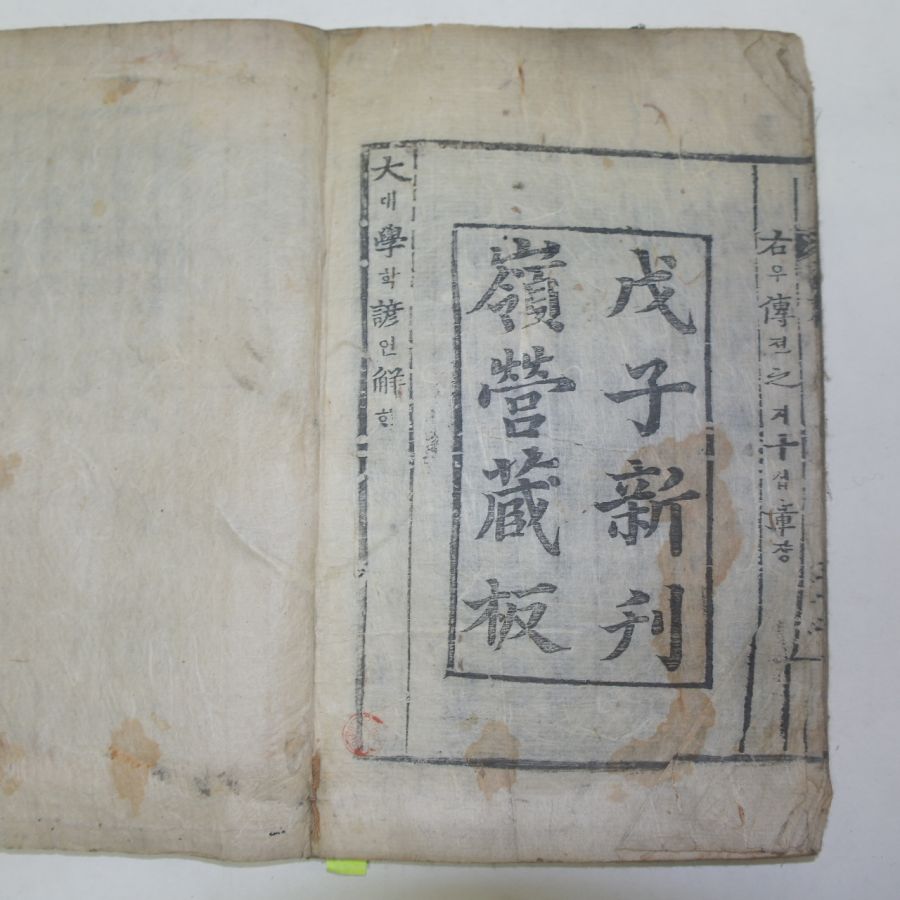 右우傳젼之지十십章쟝
戊子新刊
嶺營藏板
大대學학諺언解ᄒᆡ